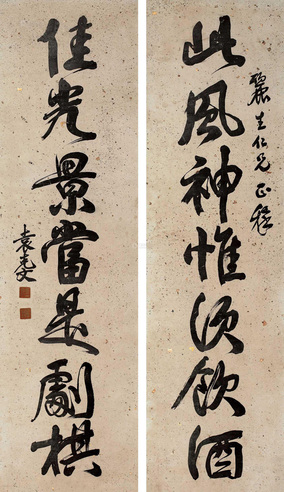 此風神惟須飲酒
麗生仁兄正稳
佳光景當是劇棋
袁克文